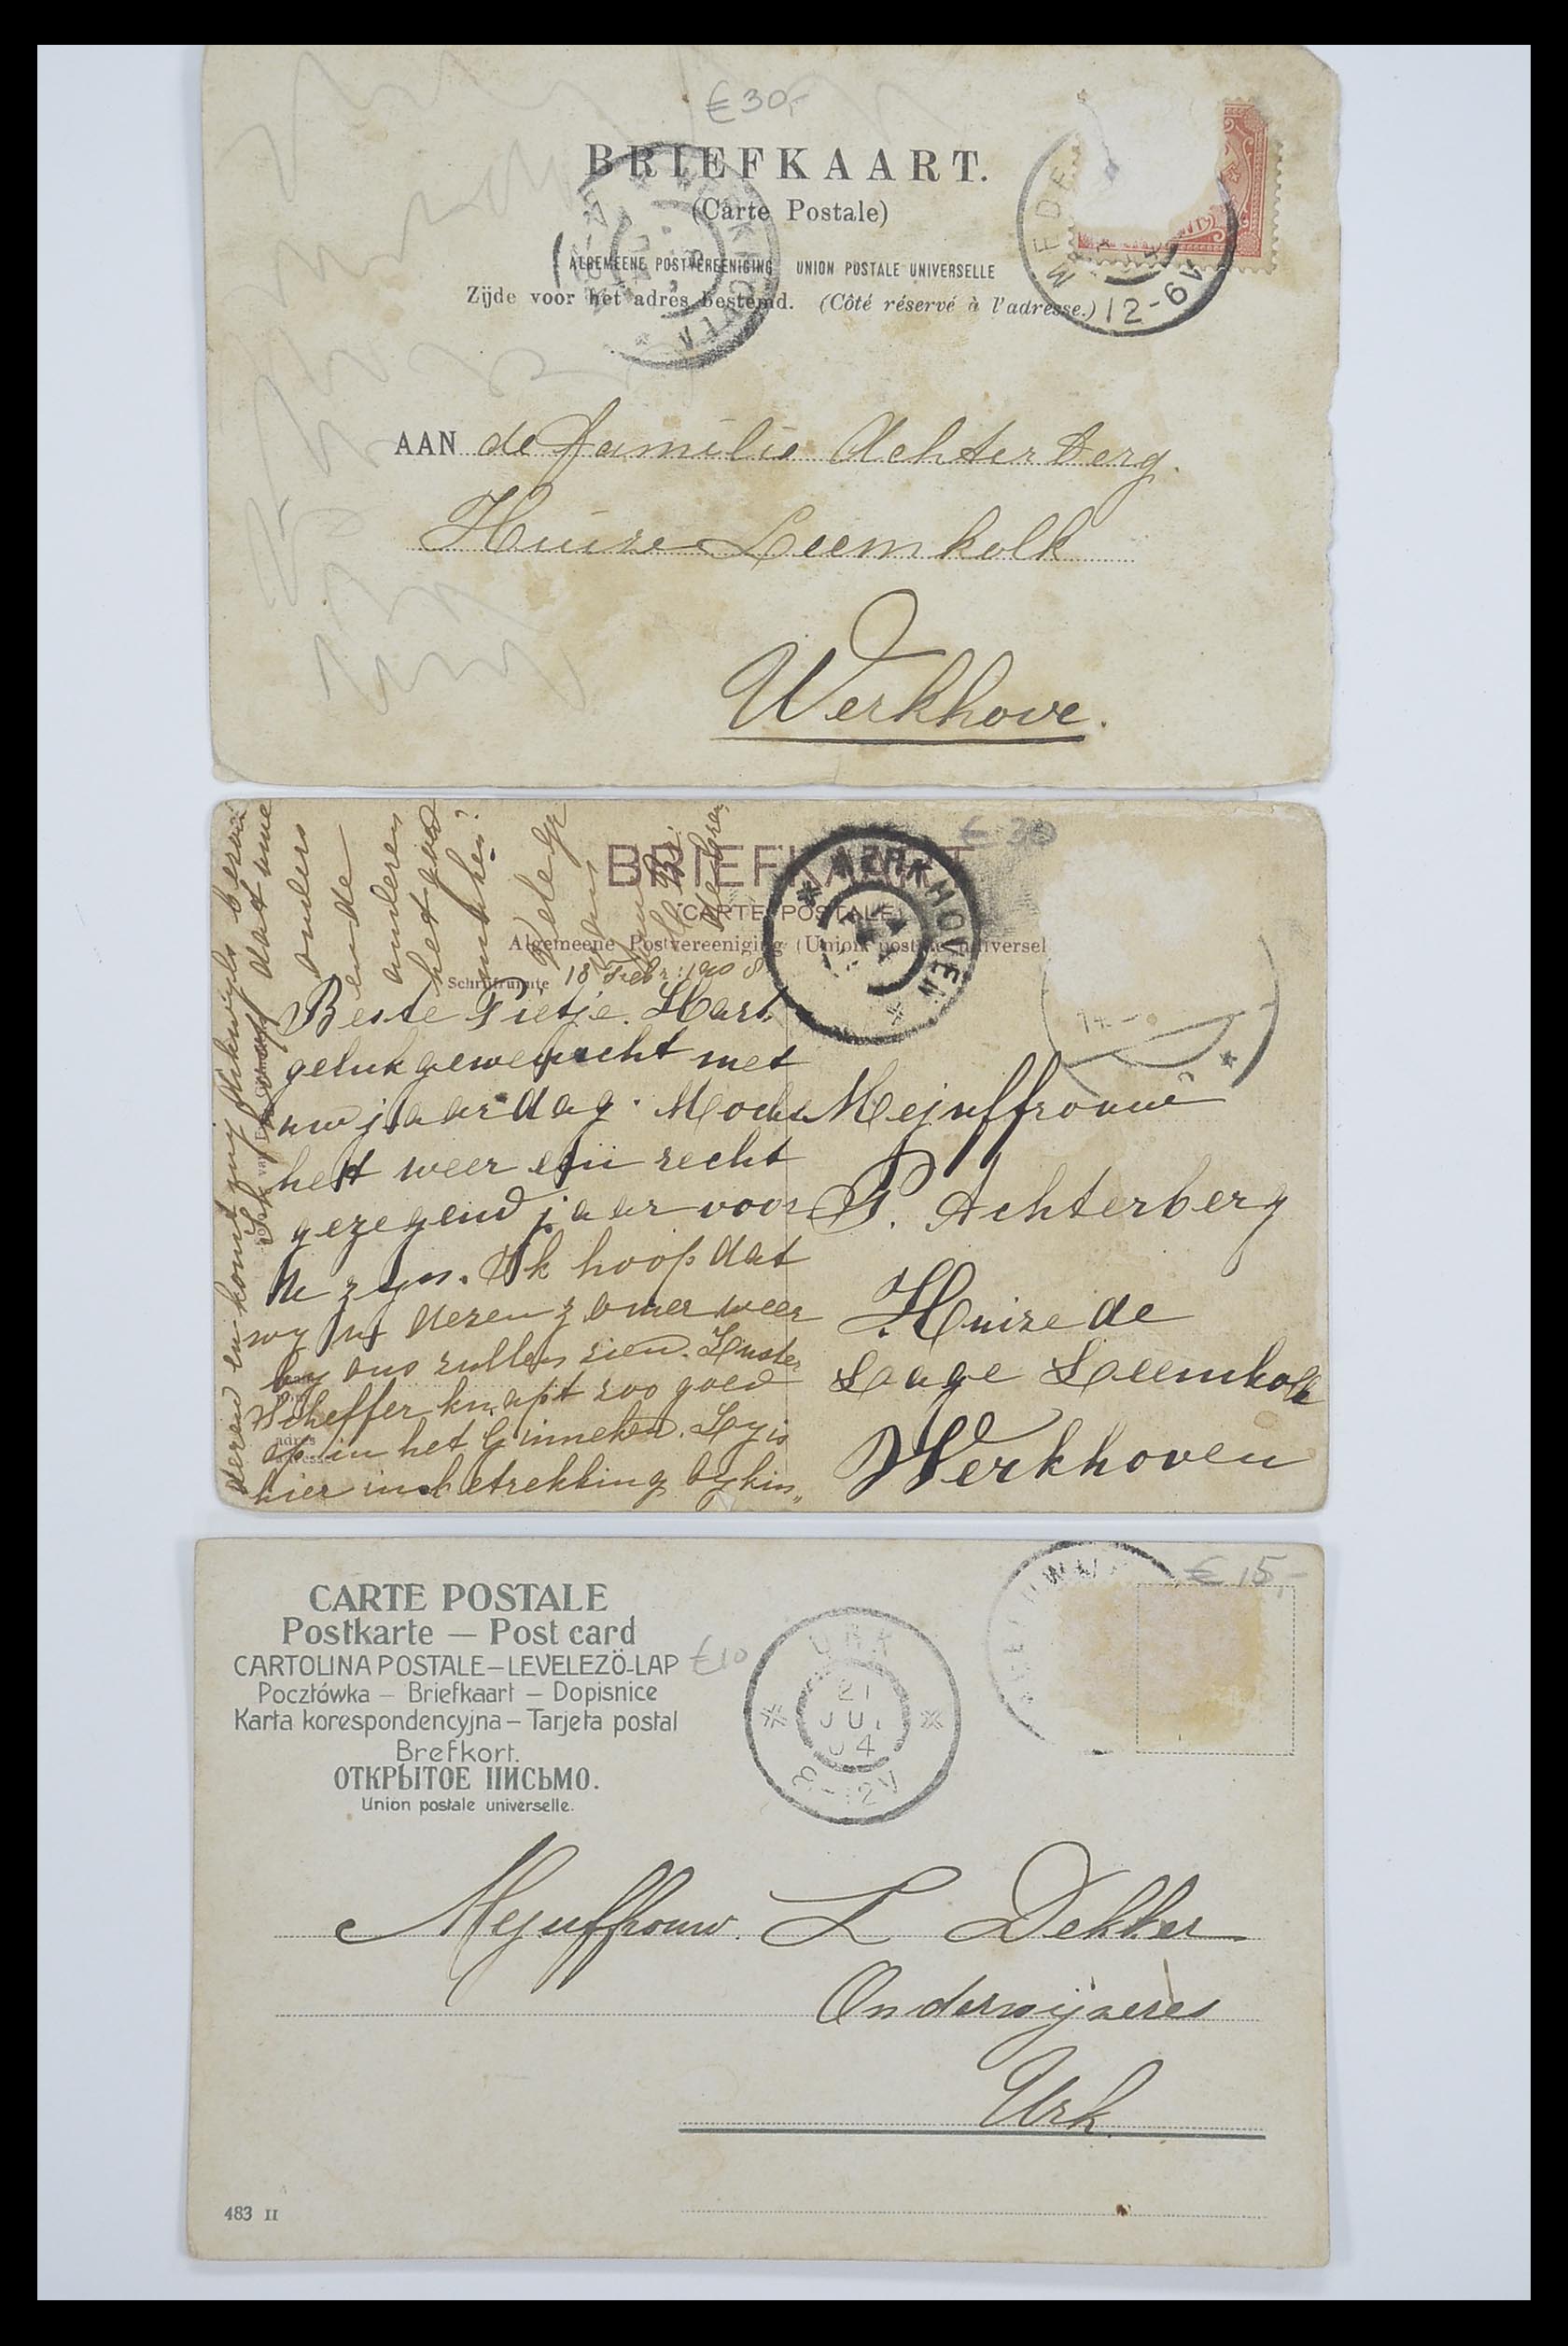 €30,-
BRIEFKAART.
(Carte Postale)
ALGEMEENE POSTVEREENIGING UNION POSTALE UNIVERSELLE
Zijde voor het adres bestemd. (Côté réservé à l'adresse.)
MEDE
12-6V
AAN de familie Achterberg.
Huize Leemkolk
Werkhove.
€ 30
BRIEFKAART
(CARTE POSTALE)
Algemeene Postvereeniging (Union postale universel
WERKHOVEN
Schrijfruimte 18 Febr: 1908
Beste Pietje. Hart.
geluk gewenscht met
uw jaardag. Mocht
het weer een recht
gezegend jaar voor
u zyn. Ik hoop dat
wy u dezen zomer weer
by ons zullen zien. Zuster
Scheffer knapt zoo goed
op in het Ginneken. Zy is
hier in betrekking by kin„
deren en komt my
dat we
anders
einde
anderen
het goed
Mejuffrouw
P. Achterberg
Huize de
Lage Leemkolk
Werkhoven
CARTE POSTALE
Postkarte — Post card
CARTOLINA POSTALE — LEVELEZÖ-LAP
Pocztówka — Briefkaart — Dopisnice
Karta korespondencyjna — Tarjeta postal
Brefkort.
ОТКРЫТОЕ ПИСЬМО.
Union postale universelle.
€10
€ 15,-
URK
21
JUL
04
8-12V
Mejuffrouw. L Dekker
Onderwijzeres
Urk.
483 II